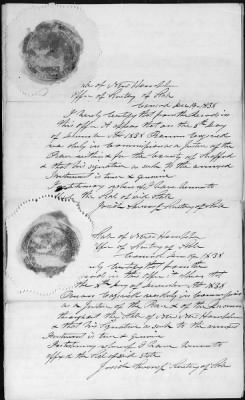 State of New Hampshire
Office of Secretary of State
Concord Dec 19 1838
I hereby certify that from the records in
this office it appears that on the 8th day
of December AD 1838
was duly Commissioned a Justice of the
Peace within & for the County of Strafford
& that his signature as such to the annexed
Instrument is true & genuine
In testimony whereof I have annexed
the Seal of said State
Secretary of State
State of New Hampshire
Office of Secretary of State
Concord Dec 19 1838
I certify that from the
records in this office it appears that
the 8th day of December AD 1838
was duly Commissioned
as a Justice of the Peace & of the Quorum
throughout the State of New Hampshire
& that his signature as such to the annexed
Instrument is true & genuine
In testimony whereof I have hereunto
affixed the Seal of said State
Secretary of State